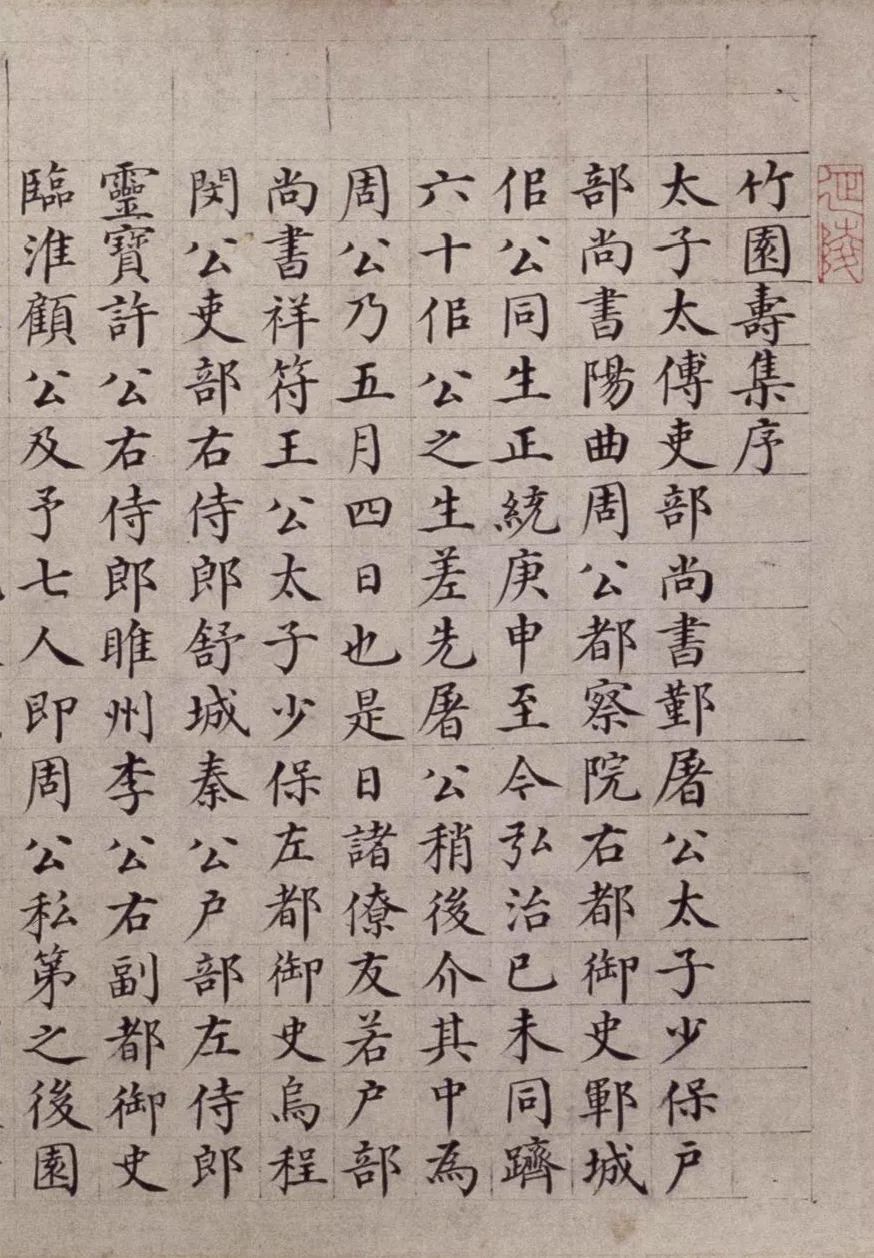 竹園壽集序
太子太傅吏部尚書鄞屠公太子少保户
部尚書陽曲周公都察院右都御史鄆城
侣公同生正統庚申至今弘治已未同躋
六十侣公之生差先屠公稍後介其中為
周公乃五月四日也是日諸僚友若户部
尚書祥符王公太子少保左都御史烏程
閔公吏部右侍郎舒城秦公户部左侍郎
靈寶許公右侍郎睢州李公右副都御史
臨淮顧公及予七人即周公私第之後園